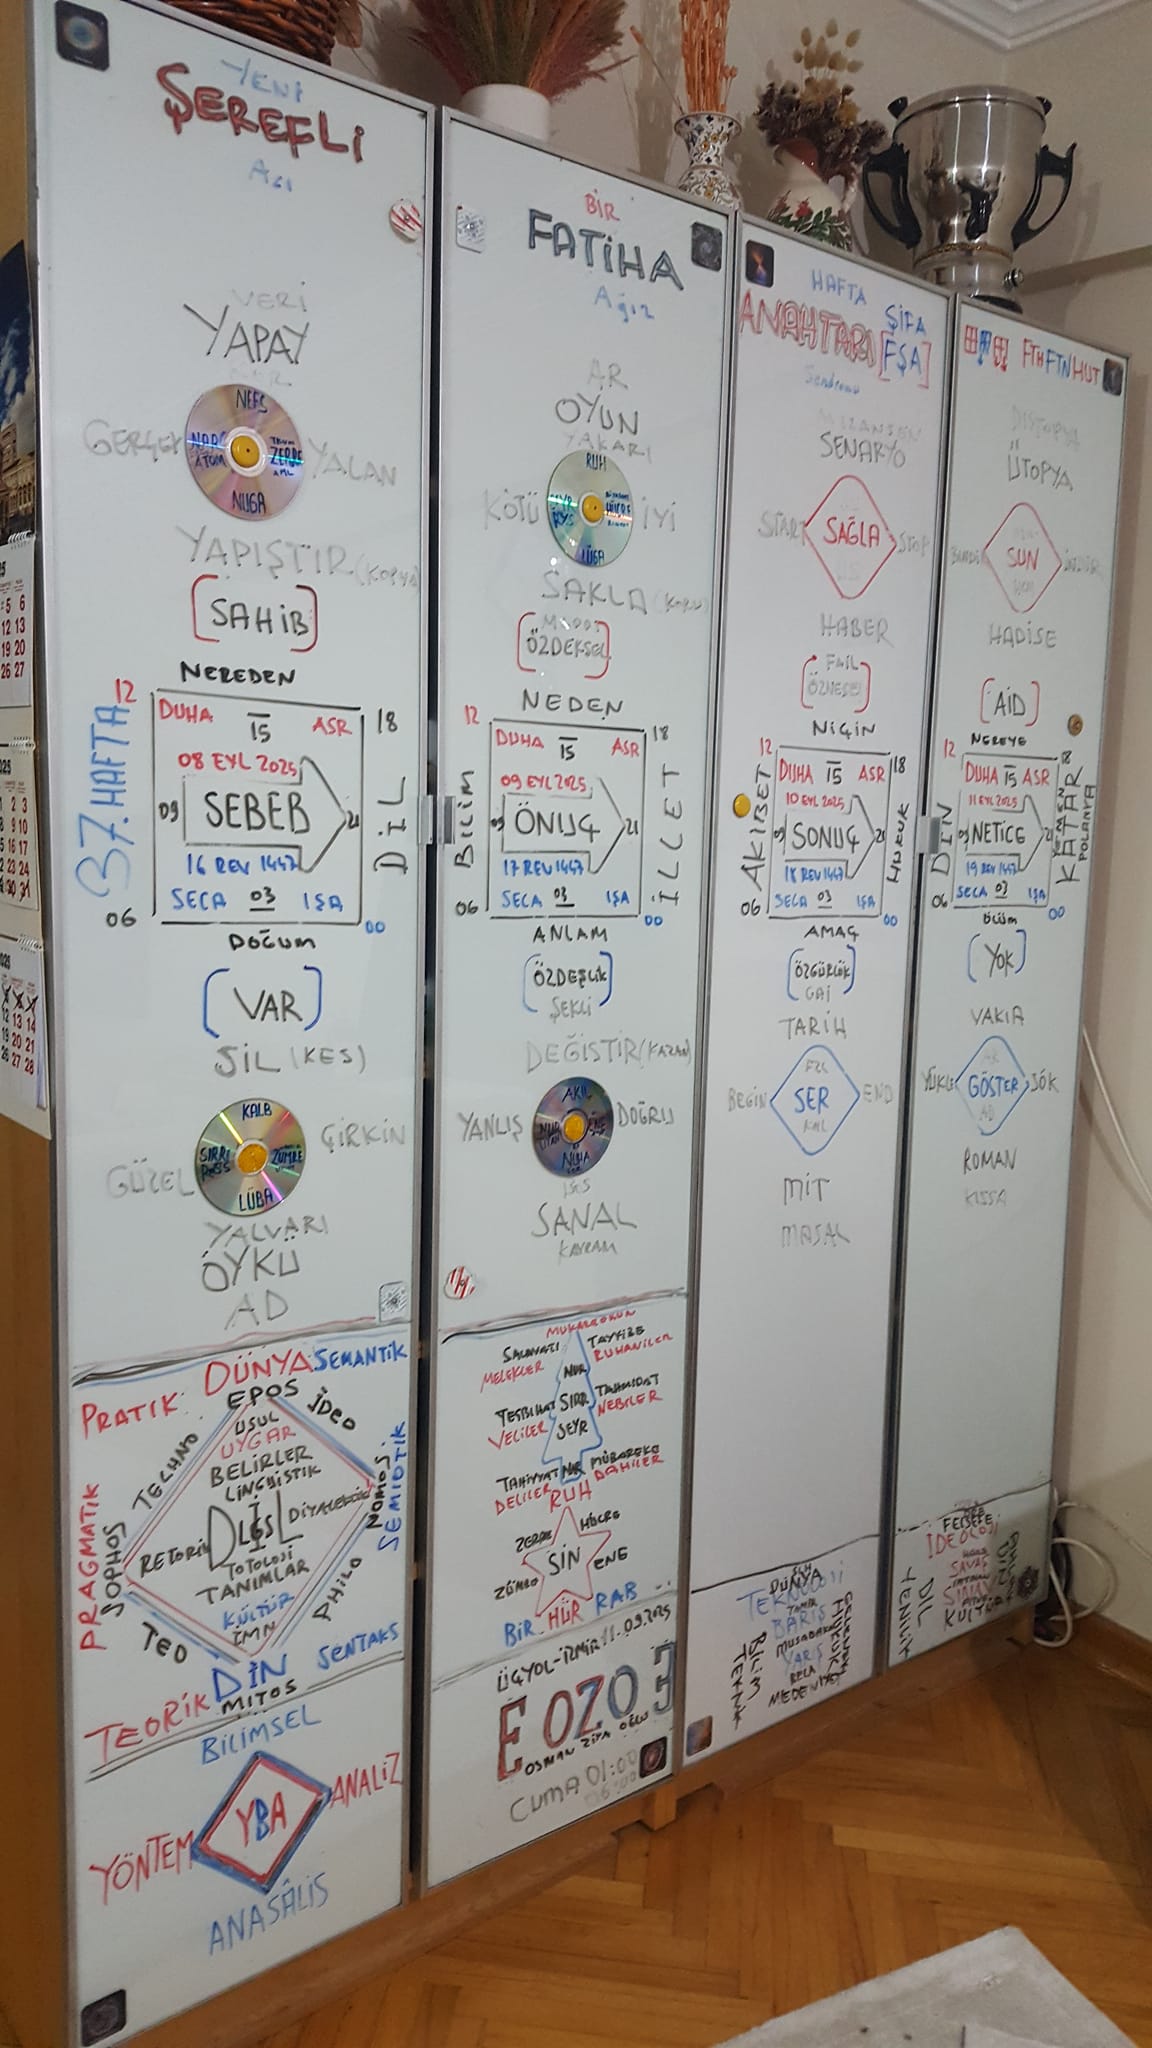 YENİ
ŞEREFLİ
Acı
VERİ
YAPAY
NEFS
GERÇEK
ATOM
ZERRE
YALAN
NUGA
YAPIŞTIR (KOPYA)
[SAHİB]
NEREDEN
12
18
DUHA 15 ASR
08 EYL 2025
37. HAFTA
09 SEBEB 21
DİL
16 REV 1447
SECA 03 IŞA
06
00
DOĞUM
[VAR]
SİL (KES)
KALB
GÜZEL
SIRRI
ZÜMRE
ÇİRKİN
LÜBA
YALVARI
ÖYKÜ
AD
DÜNYA SEMANTİK
PRATİK
EPOS
İDEO
USUL
UYGAR
TECHNO
BELİRLER
LİNGÜİSTİK
NOMOS
SEMİOTİK
PRAGMATİK
SOPHOS
RETORİK
DİYALEKTİK
TOTOLOJİ
TANIMLAR
KÜLTÜR
PHİLO
TEO
DİN
SENTAKS
TEORİK
MİTOS
BİLİMSEL
YÖNTEM
YBA
ANALİZ
ANASÂLİS
BİR
FATİHA
Ağız
AR
OYUN
YAKARI
RUH
KÖTÜ
HÜCRE
İYİ
LÜGA
SAKLA (KORU)
[ÖZDEKSEL]
NEDEN
12
18
DUHA 15 ASR
09 EYL 2025
BİLİM
ÖNUÇ 21
İLLET
17 REV 1447
SECA 03 IŞA
06
00
ANLAM
[ÖZDEŞLİK]
ŞEKLİ
DEĞİŞTİR (KAZAN)
AKIL
YANLIŞ
DOĞRU
NUHA
SANAL
KAVRAM
MUKARREBUN
SALAVATI
TAYYİBE
MELEKLER
NUR
RUHANİLER
TESBİHAT
SIRR
TAHMİDAT
VELİLER
NEBİLER
SEYR
TAHİYYAT
MÜBAREKE
DELİLER
DAHİLER
RUH
ZERRE
HÜCRE
SİN
ZÜMRE
ENE
BİR HÜR RAB
ÜÇYOL-İZMİR 11.09.2025
E OZO 3
OSMAN ZİYA OĞLU
CUMA 01:00
06:00
HAFTA
ŞİFA
ANAHTARI [FŞA]
Sendromu
MİZANSEN
SENARYO
START
SAĞLA
STOP
HABER
FAİL
[ÖZNESEL]
NİÇİN
12
18
DUHA 15 ASR
10 EYL 2025
AKIBET
SONUÇ 21
HUKUK
18 REV 1447
SECA 03 IŞA
06
00
AMAÇ
[ÖZGÜRLÜK]
GAİ
TARİH
BEGIN
SER
END
MİT
MASAL
DÜNYA
TEKNOLOJİ
BARIŞ
YARIŞ
MEDENİYET
BİLİM
TEKNİK
FTHFTNHUT
DİSTOPYA
ÜTOPYA
SUN
HADİSE
[AİD]
NEREYE
12
18
DUHA 15 ASR
11 EYL 2025
DİN
NETİCE 21
YEMEN
KATAR
POLANYA
19 REV 1447
SECA 03 IŞA
06
00
ÖLÜM
[YOK]
VAKIA
YÜKLE
GÖSTER
ROMAN
KISSA
FELSEFE
İDEOLOJİ
SAVAŞ
KÜLTÜR
DİL
YENİLİK